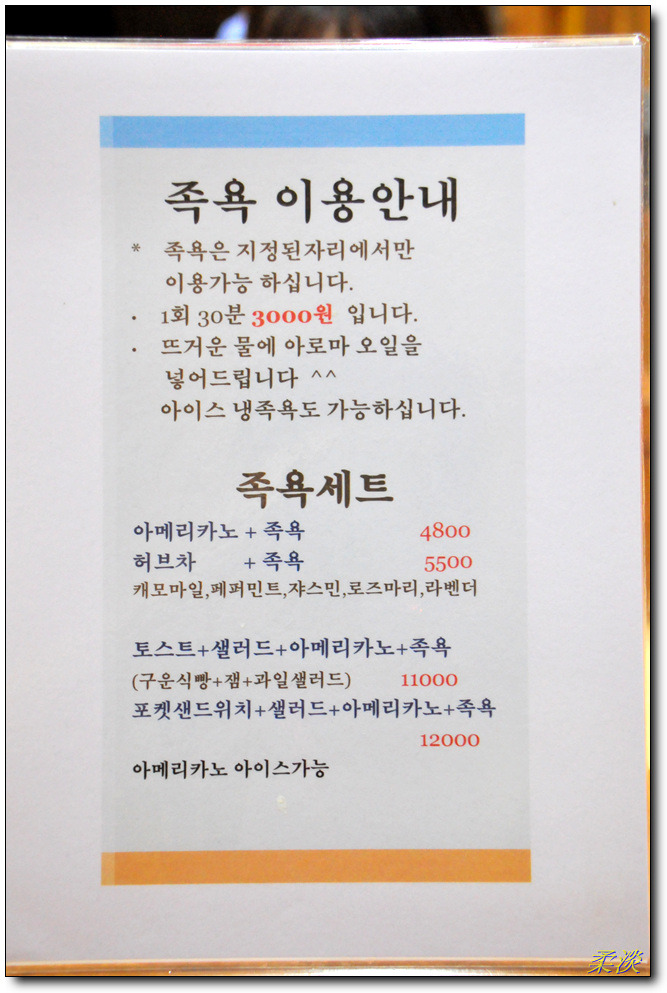 족욕 이용안내
* 족욕은 지정된자리에서만
이용가능 하십니다.
· 1회 30분 3000원 입니다.
· 뜨거운 물에 아로마 오일을
넣어드립니다 ^^
아이스 냉족욕도 가능하십니다.
족욕세트
아메리카노 + 족욕 4800
허브차 + 족욕 5500
캐모마일,페퍼민트,쟈스민,로즈마리,라벤더
토스트+샐러드+아메리카노+족욕
(구운식빵+잼+과일샐러드) 11000
포켓샌드위치+샐러드+아메리카노+족욕
12000
아메리카노 아이스가능
柔淡